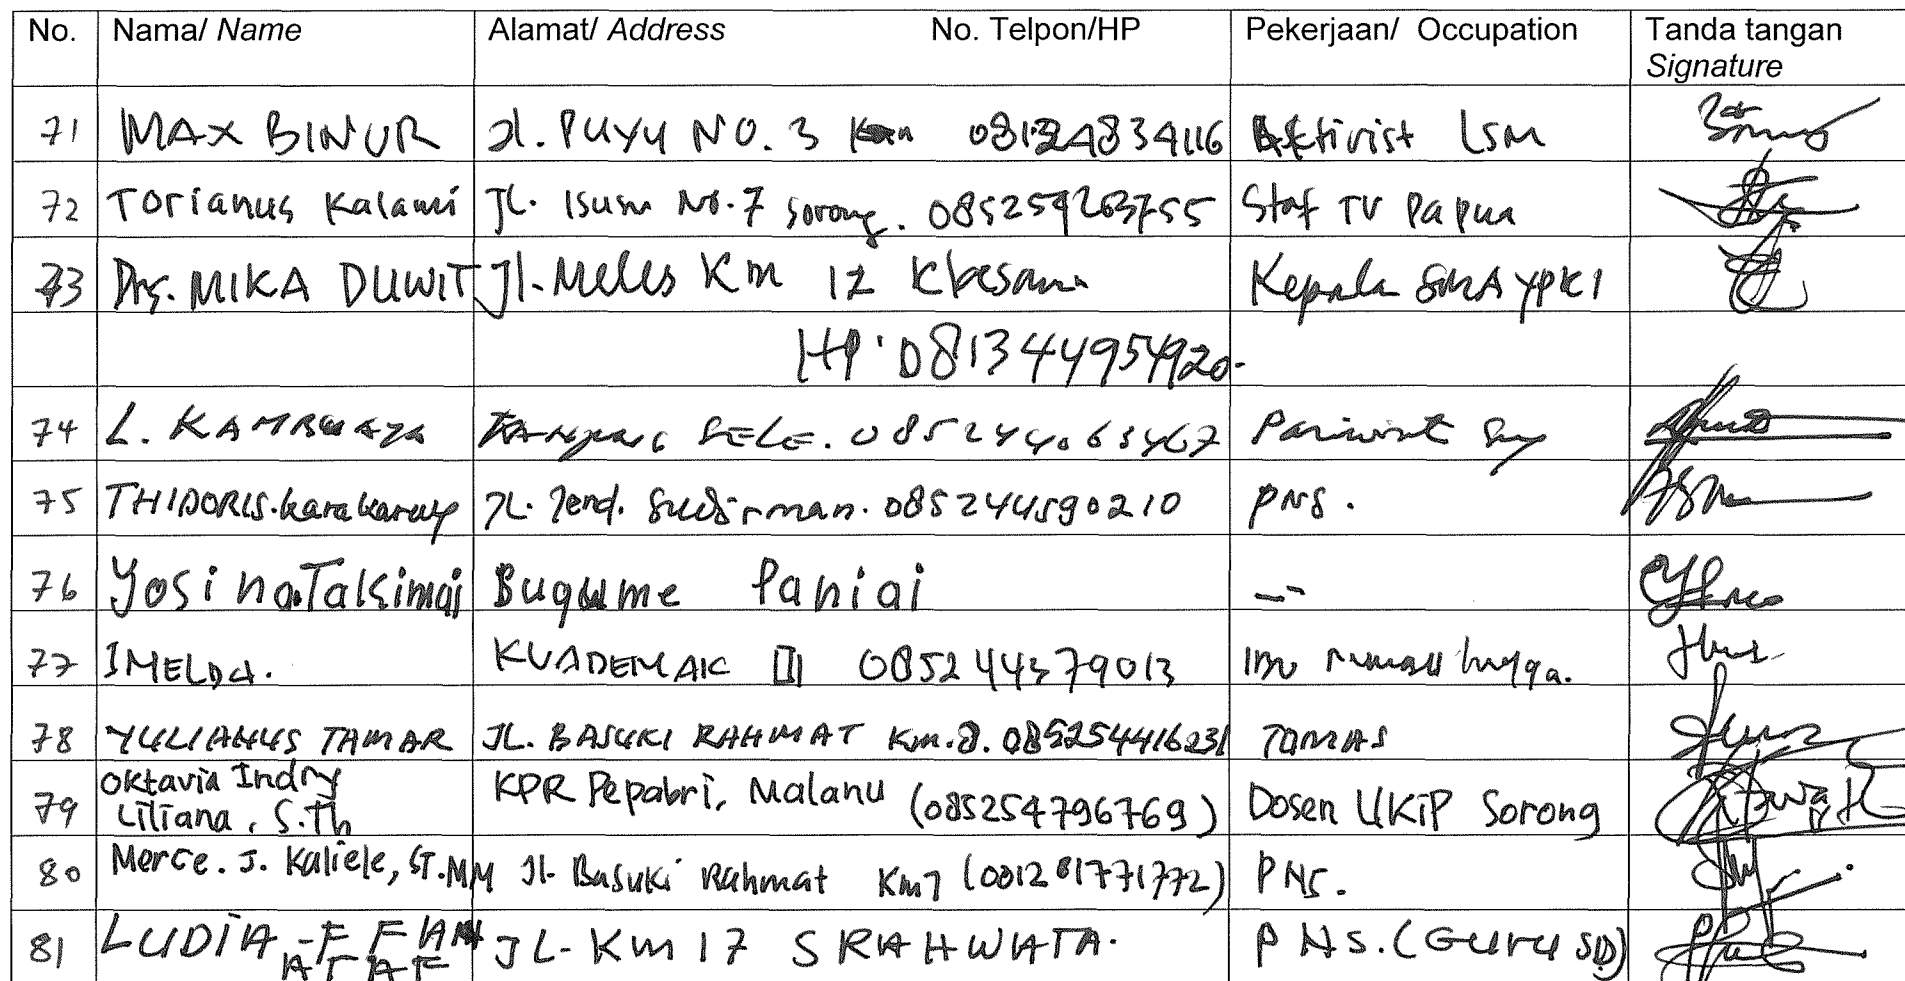 No. Nama/ Name Alamat/ Address No. Telpon/HP Pekerjaan/ Occupation Tanda tangan
Signature
71 MAX BINUR Jl. PUYU NO. 3 08124834116 Aktivist LSM
72 Torianus Kalami JL. Isusu No.7 Sorong. 085254263755 Staf TV Papua
73 Drs. MIKA DUWIT Jl. Meles Km 12 Kepala SMA YPK 1
HP. 081344954920.
74 L. SELE. 085244063467
75 THIDORIS. JL. Jend. Sudirman. 085244590210 PNS.
76 Yosina.Takimai Paniai
77 IMELDA. KUADEMAK III 085244379013 Ibu rumah tangga.
78 YULIANUS TAMAR JL. BASUKI RAHMAT Km.8. 085254416231 TOMAS
Oktavia Indry
79 Liliana, S.Th KPR Pepabri, Malanu (085254796769) Dosen UKiP Sorong
80 Merce. J. Kaliele, ST.MM Jl. Basuki Rahmat Km7 (081281771772) PNS.
81 LUDIA JL- Km 17 PNS. (Guru SD)